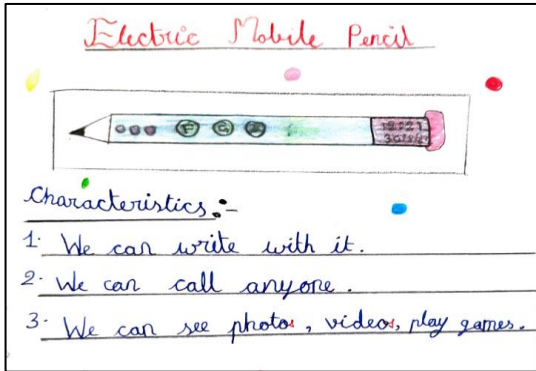 Electric Mobile Pencil
Characteristics :-
1. We can write with it.
2. We can call anyone.
3. We can see photos, videos, play games.